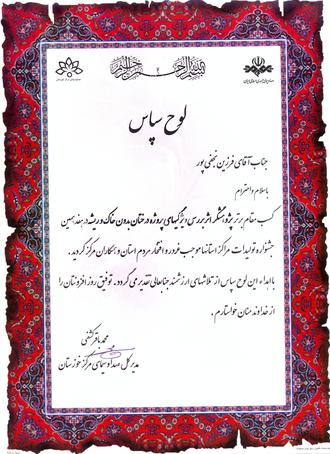 بسم الله الرحمن الرحیم
لوح سپاس
جناب آقای فرزین نجفی پور
با سلام و احترام
کسب مقام برتر پژوهشگر اثر بررسی ویژگیهای پروژه درختان بدون خاک و ریشه در هفدهمین
جشنواره تولیدات مراکز استانها موجب غرور و افتخار مردم استان و همکاران مرکز گردید.
با اهداء این لوح سپاس از تلاشهای ارزشمند جنابعالی تقدیر می گردد. توفیق روز افزونتان را
از خداوند منان خواستارم.
محمد باقر کشفی
مدیر کل صدا و سیمای مرکز خوزستان